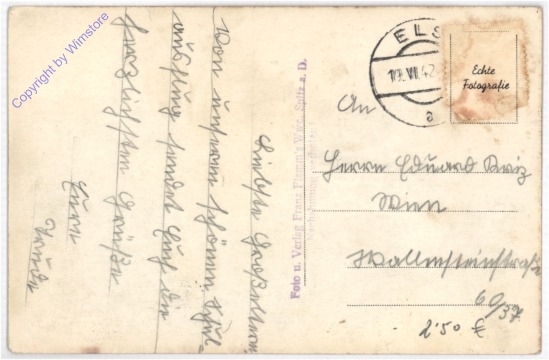 Copyright by Wimstore
Liebste Großeltern!
Von unserem schönen Schul-
ausflug sendet Euch die
herzlichsten Grüße
Eure
Traude
Foto u. Verlag Franz Wwe., Spitz a. D.
ELS
VII. 42
a
Echte
Fotografie
An
Herrn Eduard Kriz
Wien
Wallensteinstraße
60/37
2'50 €